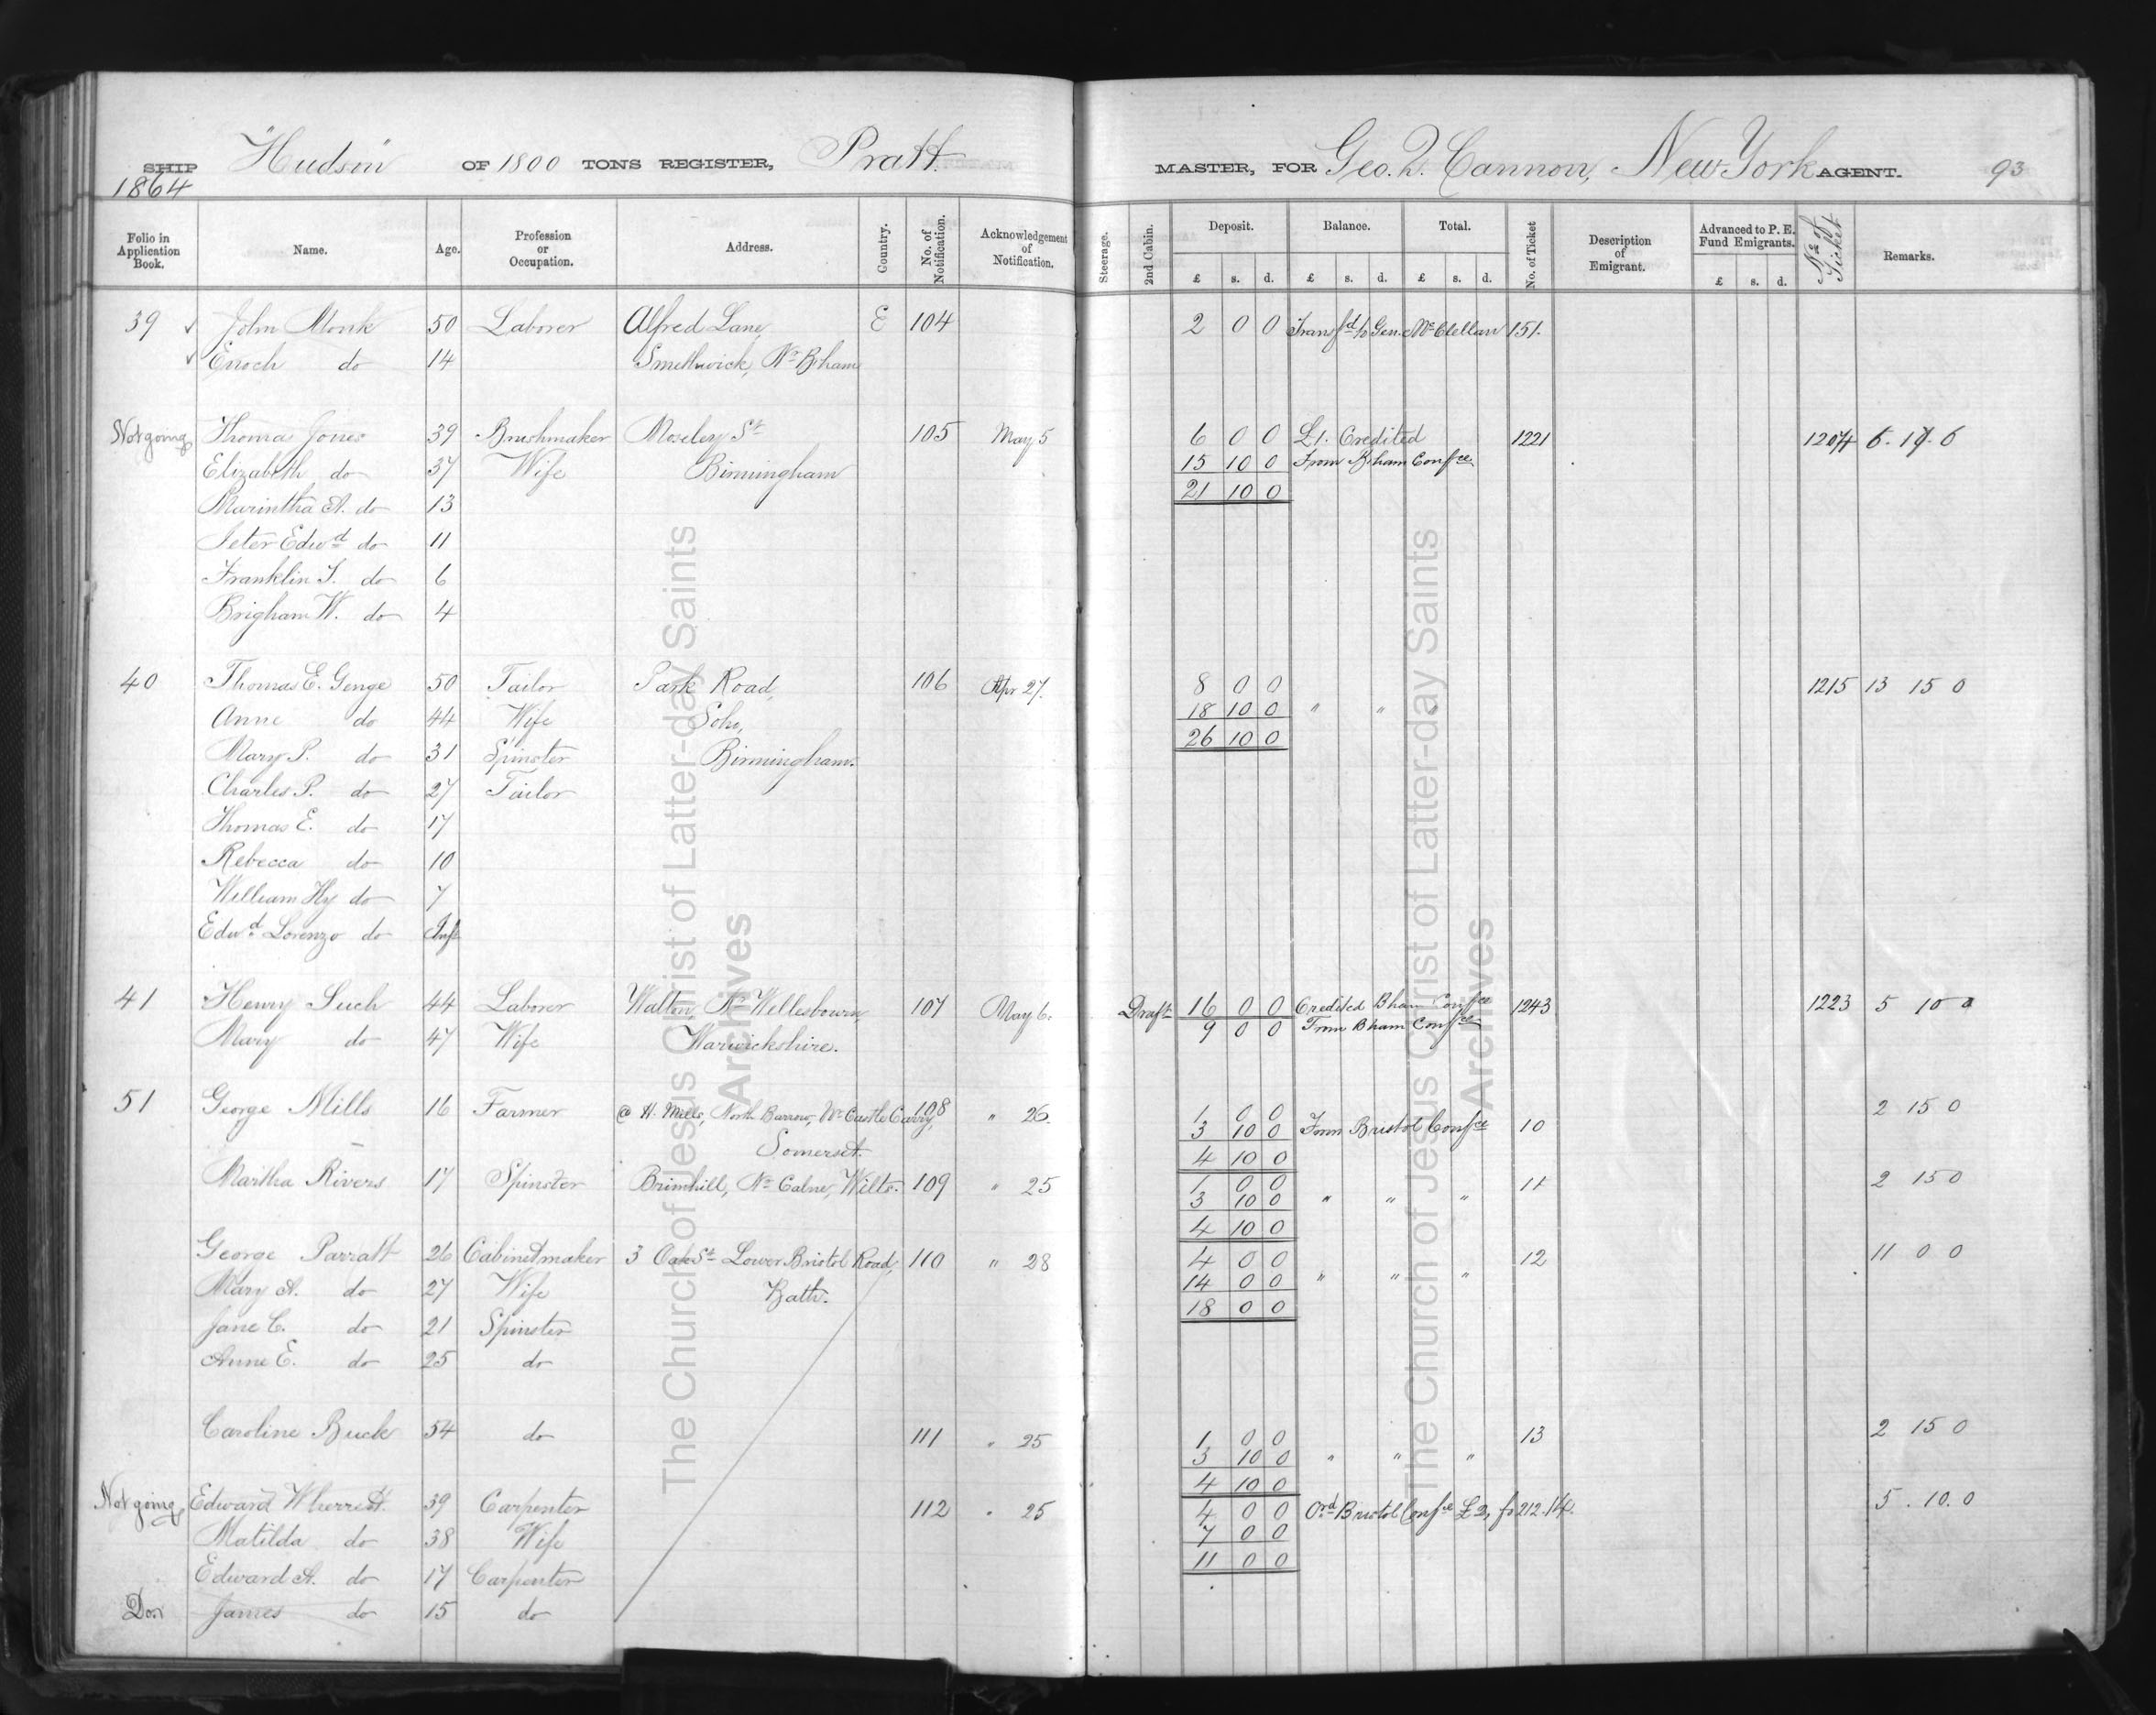 SHIP "Hudson" OF 1800 TONS REGISTER, Pratt MASTER, FOR Geo. Q. Cannon, New York AGENT. 93
1864
Folio in Application Book. Name. Age. Profession or Occupation. Address. Country. No. of Notification. Acknowledgement of Notification. Steerage. 2nd Cabin. Deposit. Balance. Total. No. of Ticket Description of Emigrant. Advanced to P. E. Fund Emigrants. No. of Ticket Remarks.
£ s. d. £ s. d. £ s. d. £ s. d.
39 ✓ John Monk 50 Laborer Alfred Lane, E 104 2 0 0 Transfd to Gen. McClellan 151.
✓ Enoch do 14 Smethwick, Nr B'ham
Not going Thomas Jones 39 Brushmaker Moseley St 105 May 5 6 0 0 £1. Credited 1221 1204 6. 17. 6
Elizabeth do 37 Wife Birmingham 15 10 0 From B'ham Confce
21 10 0
Marintha A. do 13
Jeter Edwd do 11
Franklin J. do 6
Brigham W. do 4
40 Thomas E. Genge 50 Tailor Park Road, 106 Apr 27. 8 0 0 1215 13 15 0
Anne do 44 Wife Soho, 18 10 0 " " "
26 10 0
Mary P. do 31 Spinster Birmingham.
Charles P. do 27 Tailor
Thomas E. do 17
Rebecca do 10
William Hy do 7
Edwd Lorenzo do Inft
41 Henry Such 44 Laborer Walton, Nr Wellesbourn, 107 May 6. Draft 16 0 0 Credited Bham Confce 1243 1223 5 10 0
Mary do 47 Wife Warwickshire. 9 0 0 From Bham Confce
51 George Mills 16 Farmer @ H. Mills, North Barrow, Nr Castle Carry, 108 " 26. 1 0 0 2 15 0
3 10 0 From Bristol Confce 10
Somerset. 4 10 0
Martha Rivers 17 Spinster Brimhill, Nr Calne, Wilts. 109 " 25 1 0 0 11 2 15 0
3 10 0 " " "
4 10 0
George Parratt 26 Cabinetmaker 3 Oak St Lower Bristol Road, 110 " 28 4 0 0 12 11 0 0
Mary A. do 27 Wife Bath. 14 0 0 " " "
18 0 0
Jane C. do 21 Spinster
Anne E. do 25 do
Caroline Buck 54 do 111 " 25 1 0 0 13 2 15 0
3 10 0 " " "
4 10 0
Not going Edward Wherrett. 39 Carpenter 112 " 25 4 0 0 Ord Bristol Confce £2, fo 212. 14. 5. 10. 0
Matilda do 38 Wife 7 0 0
11 0 0
Edward A. do 17 Carpenter
Do. James do 15 do
The Church of Jesus Christ of Latter-day Saints
Archives
The Church of Jesus Christ of Latter-day Saints
Archives